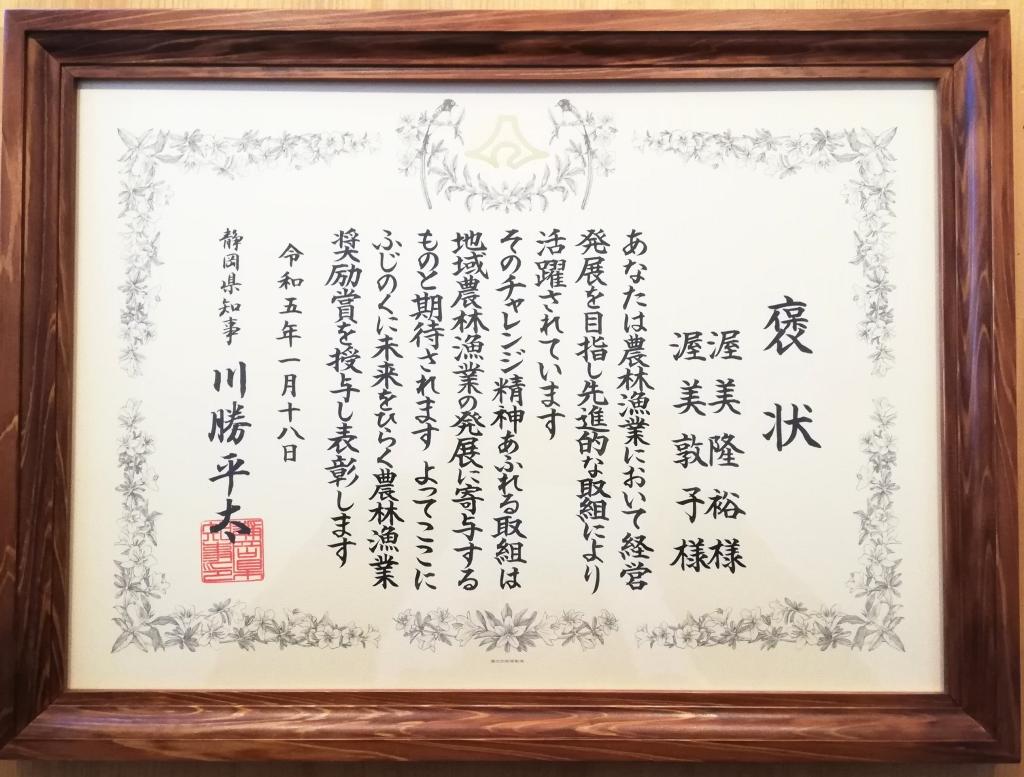 褒状
渥美隆裕様
渥美敦子様
あなたは農林漁業において経営
発展を目指し先進的な取組により
活躍されています
そのチャレンジ精神あふれる取組は
地域農林漁業の発展に寄与する
ものと期待されます よってここに
ふじのくに未来をひらく農林漁業
奨励賞を授与し表彰します
令和五年一月十八日
静岡県知事 川勝平太